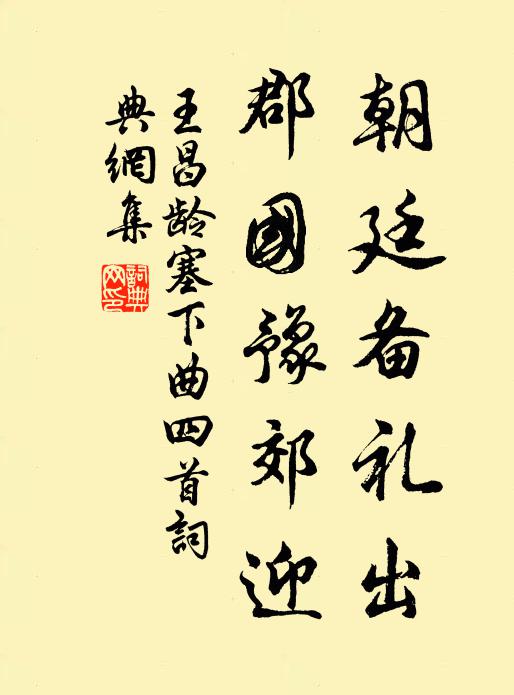 朝廷备礼出
郡國豫郊迎
王昌龄塞下曲四首詞
典網集
詞典网印